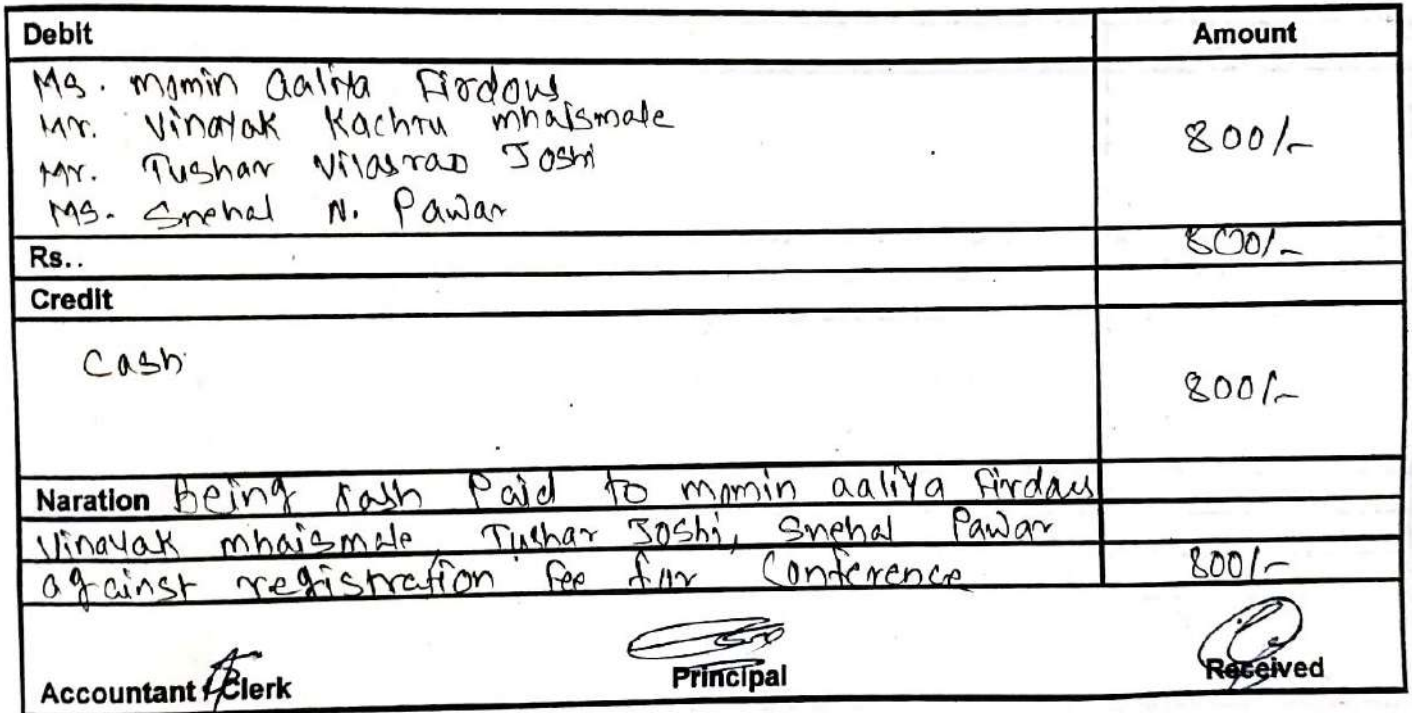 Debit Amount
Ms. Momin Aaliya Firdous
Mr. Vinayak Kachru Mhaismale
800/-
Mr. Tushar Vilasrao Joshi
Ms. Snehal N. Pawar
Rs.. 800/-
Credit
Cash
800/-
Naration Being Cash Paid to momin aaliya firdous
Vinayak mhaismale, Tushar Joshi, Snehal Pawar
against registration fee for Conference 800/-
Accountant / Clerk Principal Received